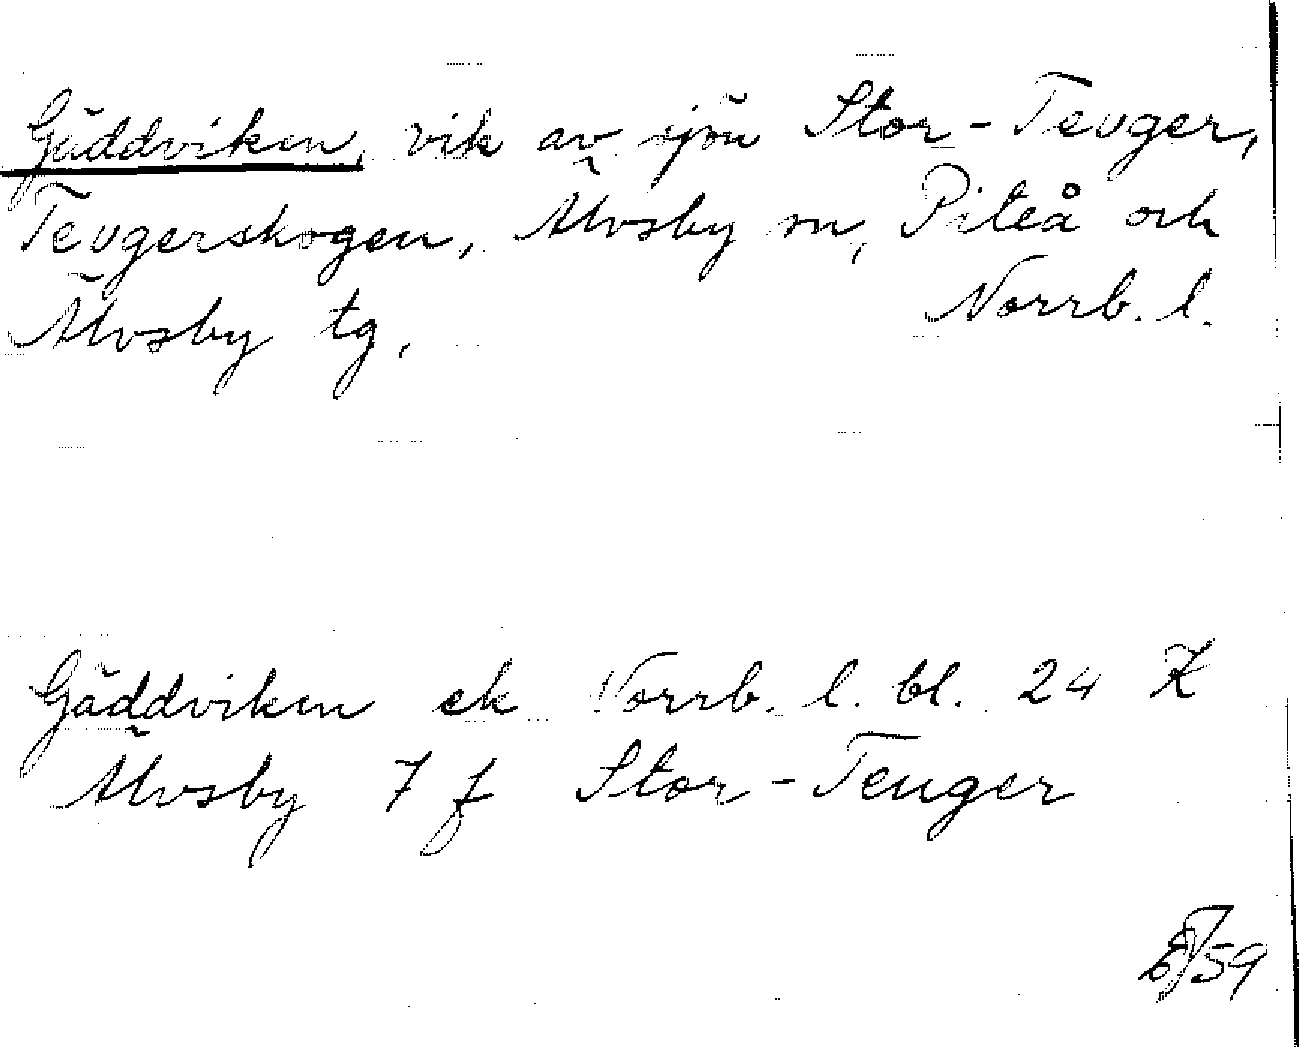 Gäddviken, vik av sjön Stor-Teuger,
Teugerskogen, Älvsby sn, Piteå och
Älvsby tg, Norrb. l.
Gäddviken ek Norrb. l. bl. 24 K
Älvsby 7 f Stor-Teuger
59